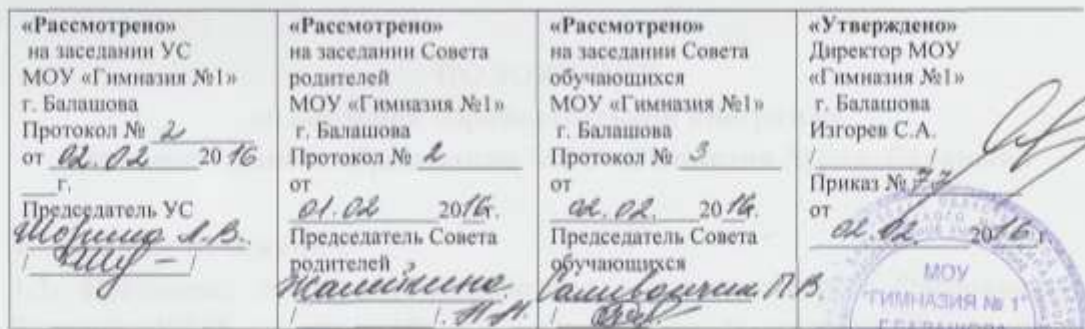 «Рассмотрено»
на заседании УС
МОУ «Гимназия №1»
г. Балашова
Протокол № 2
от 02.02 20 16
г.
Председатель УС
Шорина Л.В.
/ /
«Рассмотрено»
на заседании Совета
родителей
МОУ «Гимназия №1»
г. Балашова
Протокол № 2
от
01.02 2016г.
Председатель Совета
родителей
/ /
«Рассмотрено»
на заседании Совета
обучающихся
МОУ «Гимназия №1»
г. Балашова
Протокол № 3
от
02.02. 2016г.
Председатель Совета
обучающихся
П.В.
/
«Утверждено»
Директор МОУ
«Гимназия №1»
г. Балашова
Изгорев С.А.
/ /
Приказ № 77
от
02.02. 2016 г.
МОУ
"ГИМНАЗИЯ № 1"